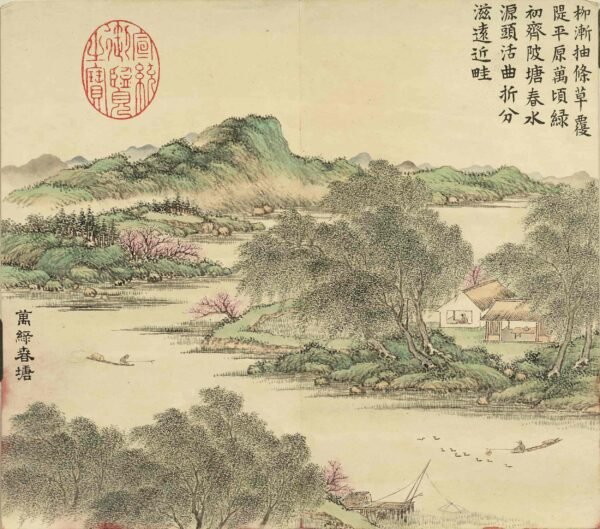 柳漸抽條草覆
隄平原萬頃綠
初齊陂塘春水
源頭活曲折分
滋遠近畦
宣統
御覽
之寶
萬綠春塘